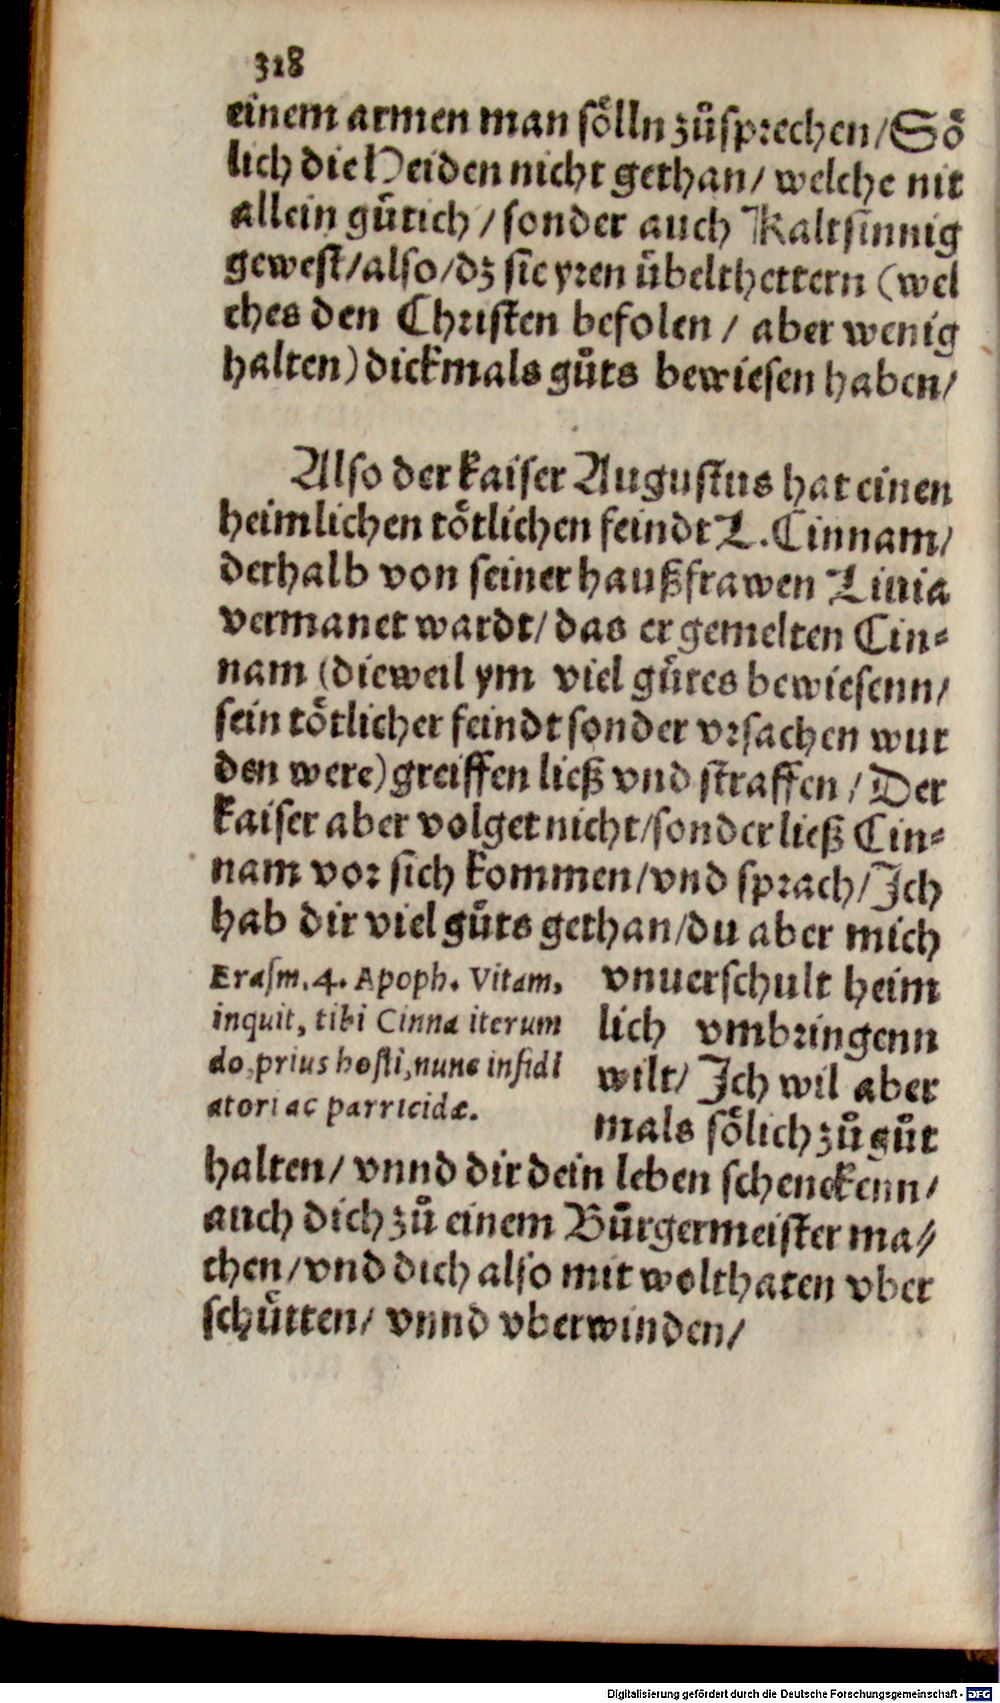 318
einem armen man soͤlln zuͦsprechen/Soͤ
lich die Heiden nicht gethan/ welche nit
allein guͤtich/sonder auch Kaltsinnig
gewest/also/dz sie yren übelthettern (wel
ches den Christen befolen/ aber wenig
halten) dickmals guͦts bewiesen haben/
Also der kaiser Augustus hat einen
heimlichen toͤtlichen feindt L.Cinnam/
derhalb von seiner haußfrawen Liuia
vermanet wardt/das er gemelten Cin⸗
nam (dieweil ym viel guͤtes bewiesenn/
sein toͤtlicher feindt sonder vrsachen wur
den were) greiffen ließ vnd straffen/Der
kaiser aber volget nicht/sonder ließ Cin⸗
nam vor sich kommen/vnd sprach/Ich
hab dir viel guͦts gethan/du aber mich
vnuerschult heim
lich vmbringenn
wilt/ Ich wil aber
mals soͤlich zuͦ guͦt
Erasm. 4. Apoph. Vitam,
inquit, tibi Cinna iterum
do, prius hosti, nunc insidi
atori ac parricidæ.
halten/ vnnd dir dein leben schenckenn/
auch dich zuͦ einem Buͤrgermeister ma⸗
chen/vnd dich also mit wolthaten vber
schuͤtten/ vnnd vberwinden/
Digitalisierung gefördert durch die Deutsche Forschungsgemeinschaft - DFG